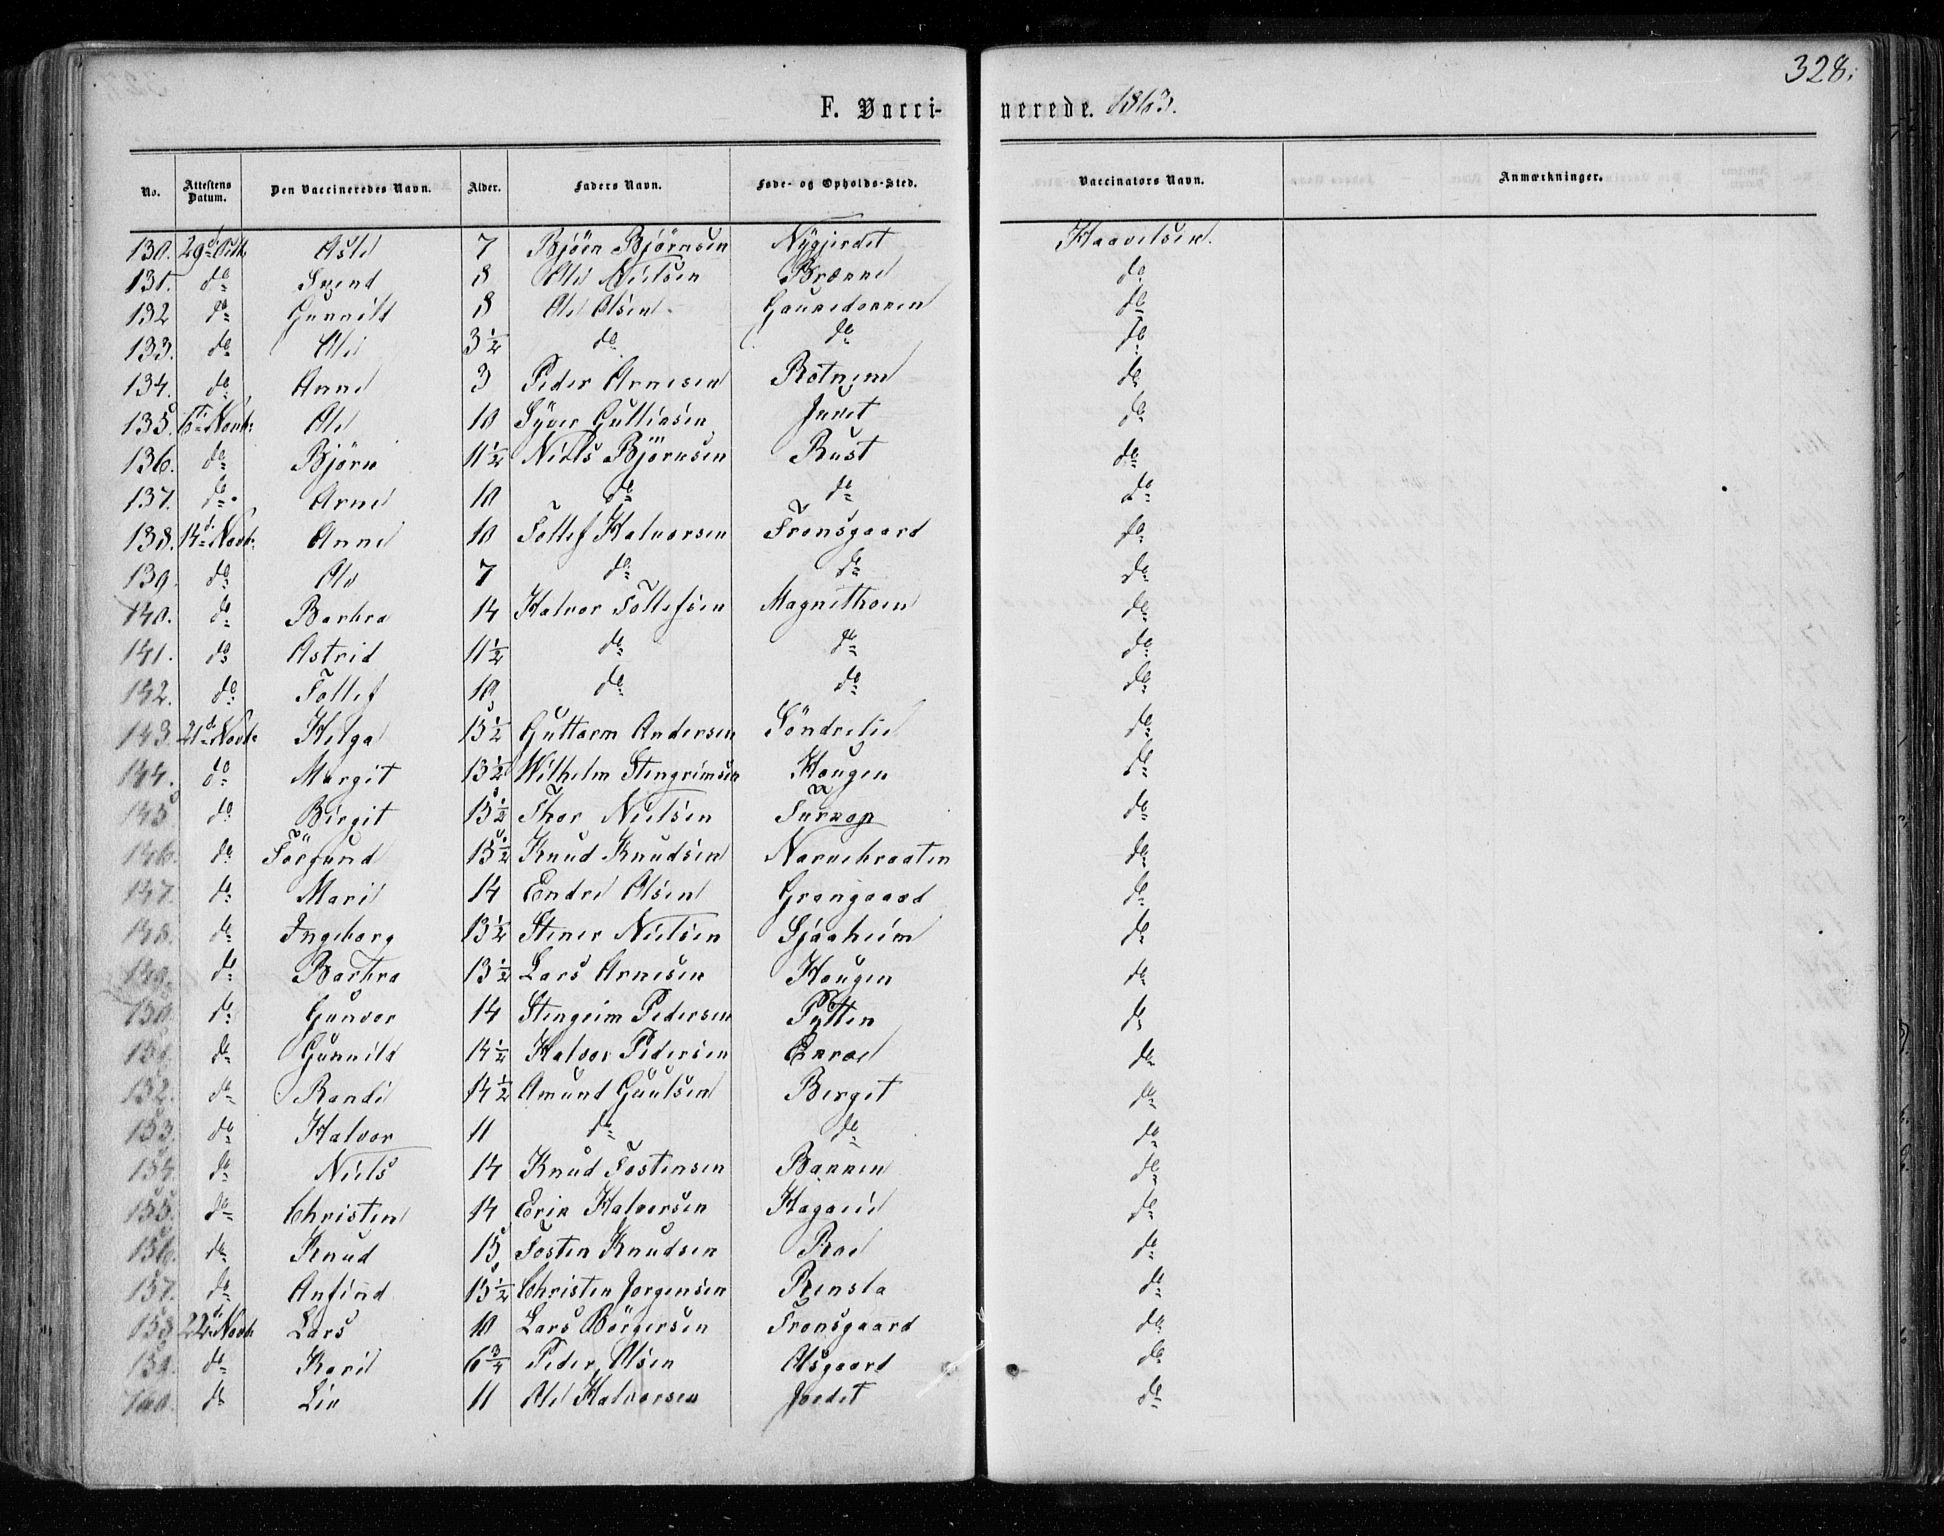 328.
F. Vacci- nerede. 1863.
No. Attestens Datum. Den Vaccineredes Navn. Alder. Faders Navn. Føde- og Opholds-Sted. Vaccinators Navn. Anmærkninger.
130. 29de Octb. Asle 7 Bjørn Bjørnsen Nygjerdet Haavelsen.
131. do Svend 8 Ole Nielsen Brænne do
132 do Gunnild 8 Ole Olsen do
133. do Ole 3½ do do do
134. do Anne 3 Peder Arnesen Rotneim do
135. 6te Novb. Ole 10 Syver Guttiosen Juvet do
136. do Bjørn 11½ Niels Bjørnsen Rust do
137. do Arne 10 do do do
138. 14de Novb. Anne 10 Tollef Halvorsen Fronsgaard do
139. do Ole 7 do do do
140. do Barbra 14 Halvor Tollefsen Magnethoen do
141. do Astrid 11½ do do do
142. do Tollef 10 do do do
143. 21de Novb. Helga 15½ Guttorm Andersen Söndrelie do
144. do Margit 13½ Wilhelm Stengrimsen Haugen do
145 do Birgit 15½ Thor Nielsen do
146. do Törgund 15½ Knud Knudsen Narvebraaten do
147. do Mari 14 Endre Olsen Grangaard do
148. do Ingeborg 13½ Stener Nielsen Sjaaheim do
149. do Barbra 13½ Lars Arnesen Haugen do
150. do Gunvor 14 Stengrim Pedersen Pytten do
151. do Gunnild 14½ Halvor Pedersen do
152. do Randi 14½ Amund Guulsen Berget do
153. do Halvor 11 do do do
154. do Niels 14 Knud Tostensen Bannen do
155. do Christen 14 Erik Halvorsen Hagarie do
156. do Knud 15 Tosten Knudsen Roe do
157. do Anfind 15½ Christen Jorgensen Rensla do
158. 22de Novb. Lars 10 Lars Börgersen Fronsgaard do
159. do Kari 6¾ Peder Olsen Olsgaard do
160. do Liv 11 Ole Halvorsen Jordet do